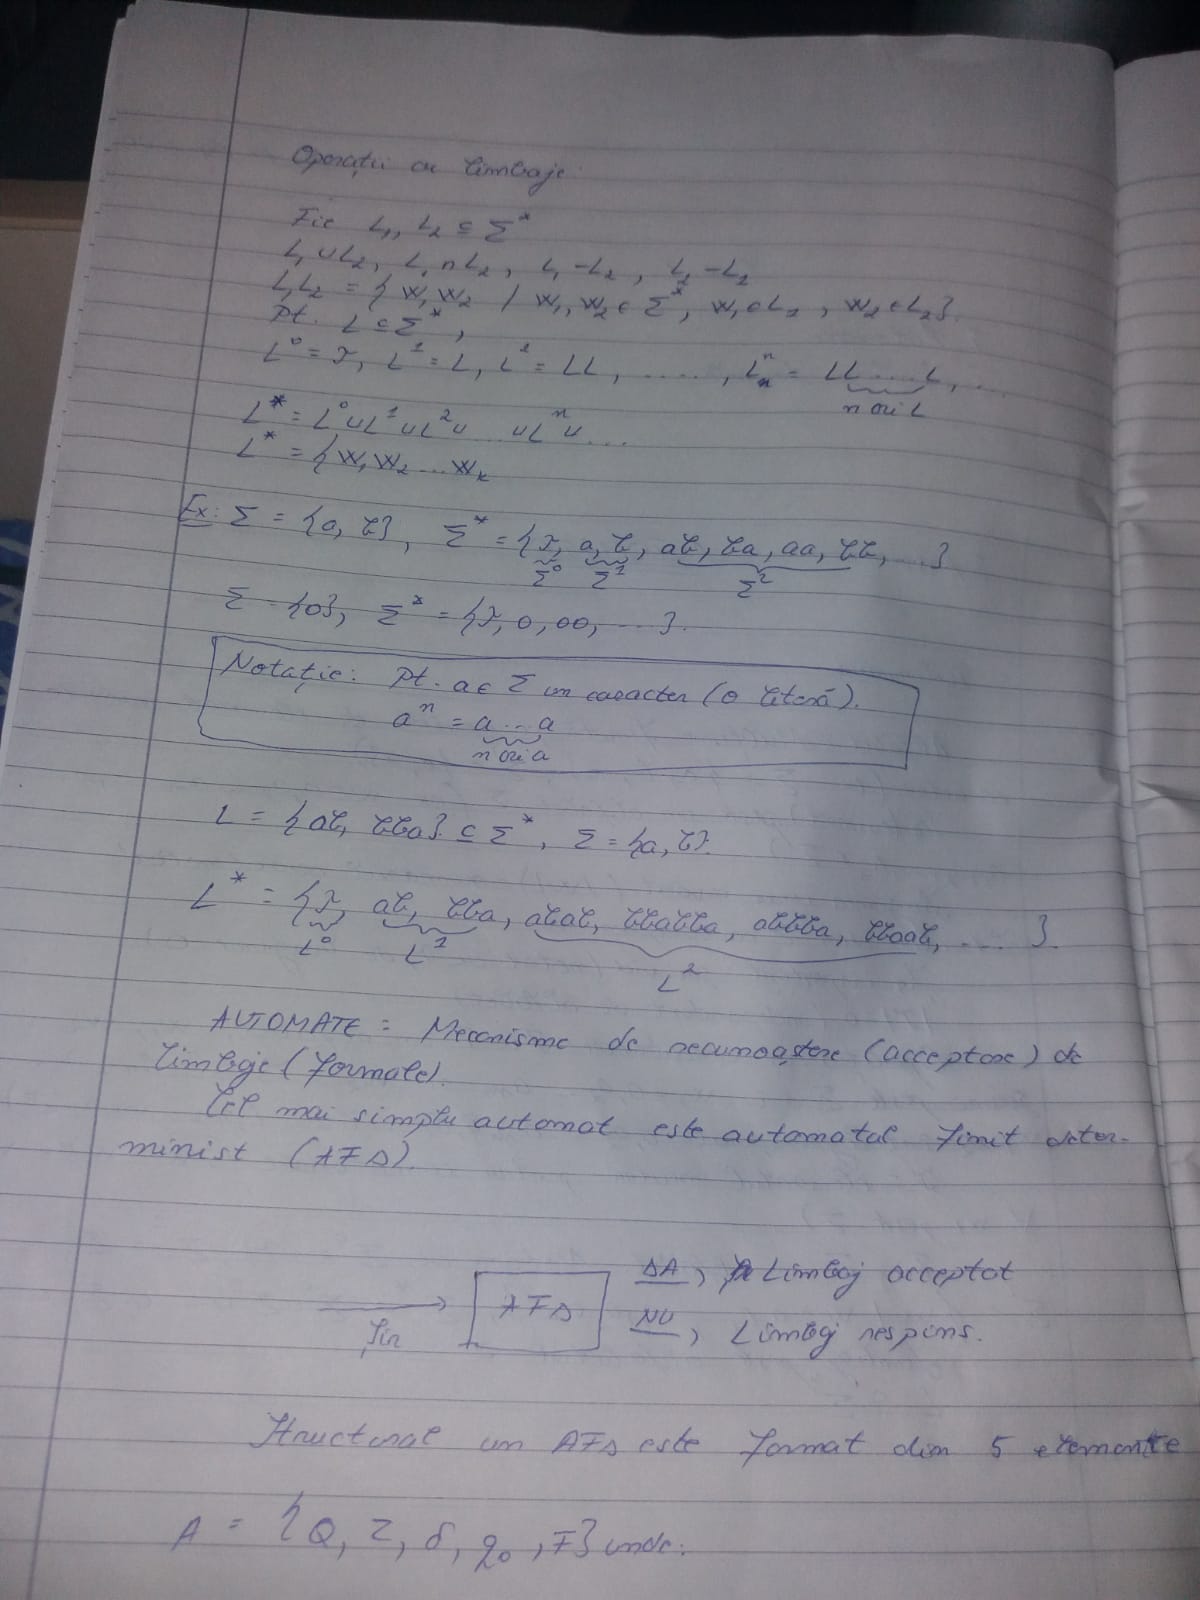 Operații cu limbaje.
Fie L₁, L₂ ⊆ Σ*
L₁∪L₂, L₁∩L₂, L₁-L₂, L₂-L₁
L₁L₂ = { w₁w₂ / w₁, w₂ ∈ Σ*, w₁∈L₁, w₂∈L₂}.
Pt. L⊆Σ*,
L⁰ = λ, L¹ = L, L² = LL, ......, Lⁿ = LL....L, ...
n ori L
L* = L⁰∪L¹∪L²∪...∪Lⁿ∪...
L* = { w₁w₂...wₖ
Ex: Σ = {a, b}, Σ* = {λ, a, b, ab, ba, aa, bb, ...}
Σ⁰ Σ¹ Σ²
Σ = {0}, Σ* = {λ, 0, 00, ...}.
Notație: Pt. a∈Σ un caracter (o literă).
aⁿ = a...a
n ori a
L = {ab, bba} ⊆ Σ*, Σ = {a, b}.
L* = {λ, ab, bba, abab, bbabba, abbba, bbaab, .... }.
L⁰ L¹ L²
AUTOMATE = Mecanisme de recunoaștere (acceptare) de
limbaje (formale).
Cel mai simplu automat este automatul finit deter-
minist (AFD).
DA, Limbaj acceptat
șir AFD
NU, Limbaj respins.
Structural un AFD este format din 5 elemente
A = {Q, Σ, δ, q₀, F} unde: